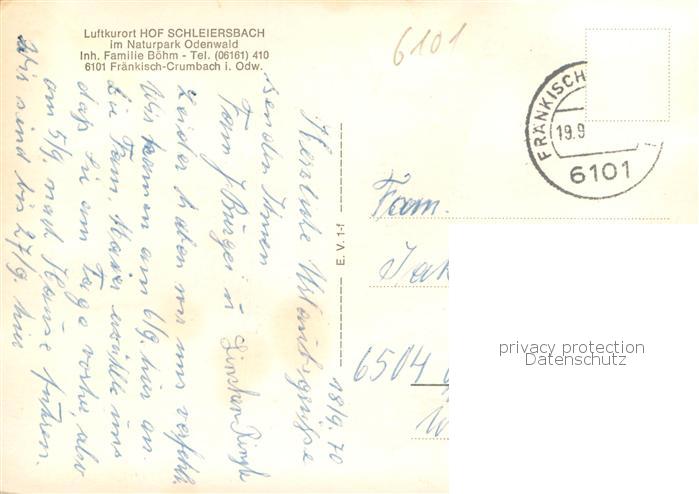 Luftkurort HOF SCHLEIERSBACH
im Naturpark Odenwald
Inh. Familie Böhm - Tel. (06161) 410
6101 Fränkisch-Crumbach i. Odw.
6101
FRÄNKISCH
19.9
6101
18/9. 70
Herzliche Urlaubsgrüsse
senden Ihnen
Fam. J. Bürgei u.
Leider haben wir uns verfehlt.
Wir kamen am 6/9. hier an.
Die Fam. Maier erzählte uns
daß Sie am Tage vorher, also
am 5/9. nach Hause fuhren.
Wir sind bis 27/9. hier
E. V. 1-f
Fam.
Jak
6504
privacy protection
Datenschutz